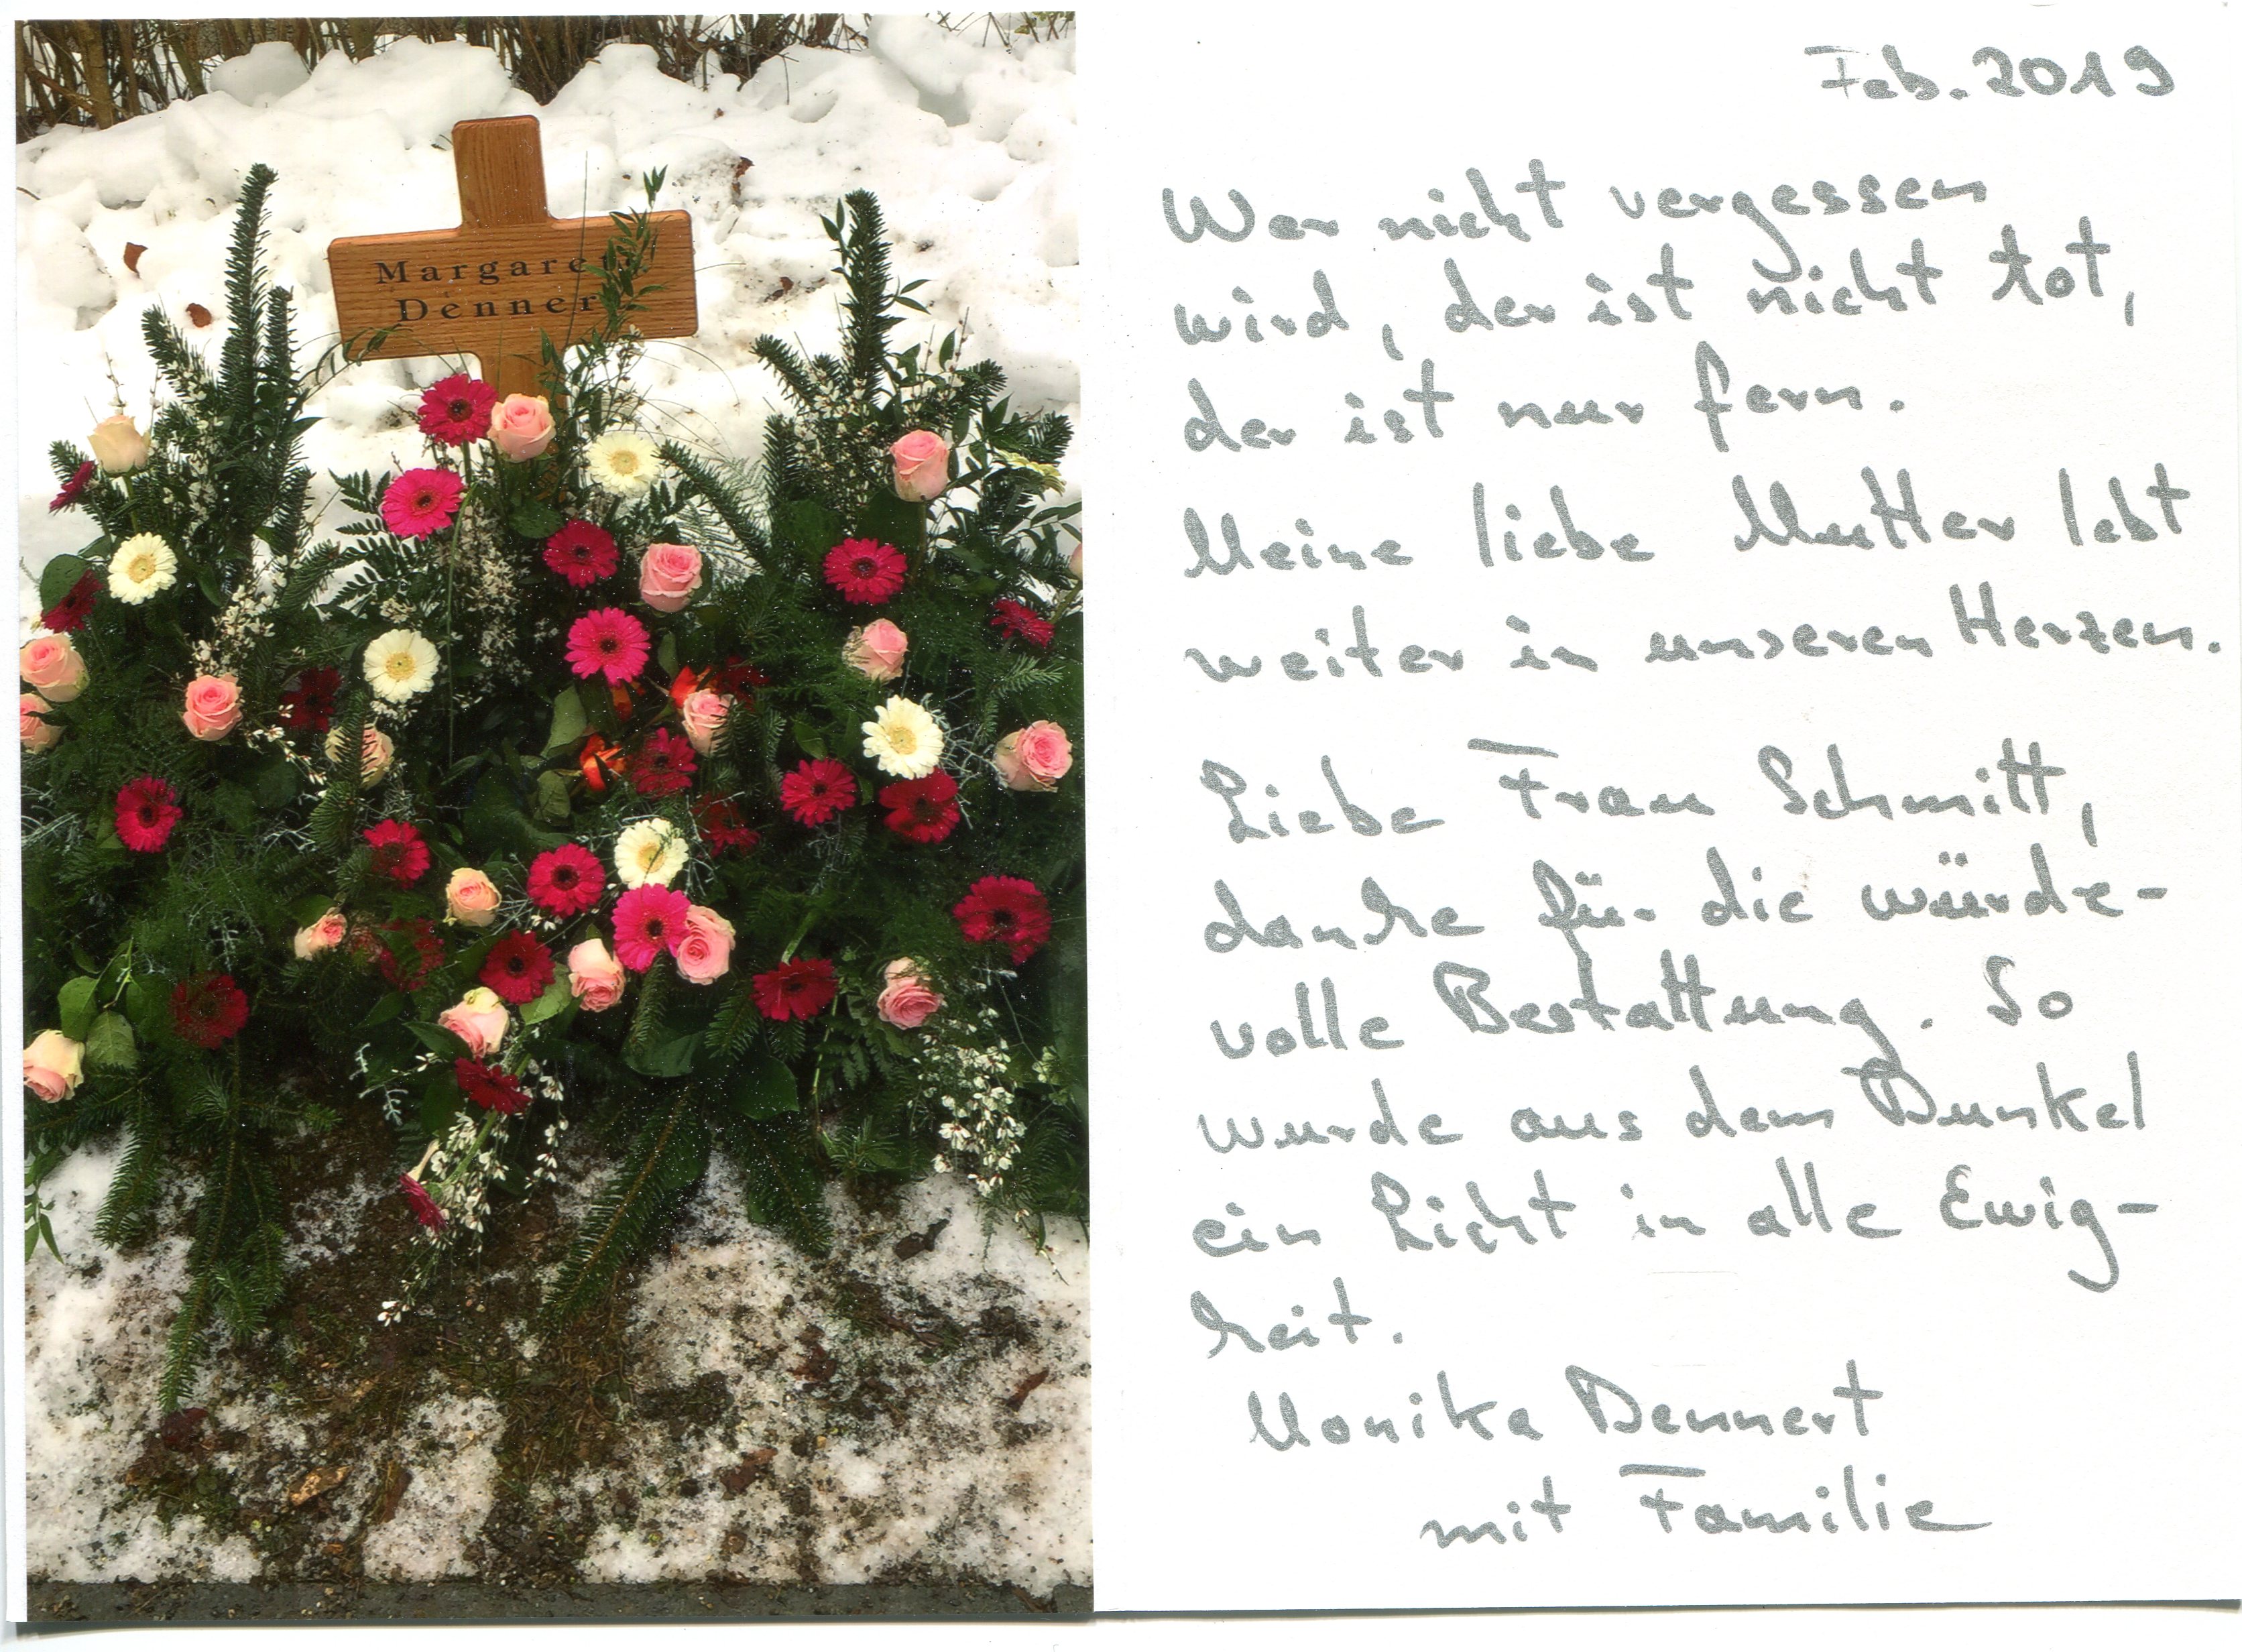 Margaret
Denner
Feb. 2019
Wer nicht vergessen
wird, der ist nicht tot,
der ist nur fern.
Meine liebe Mutter lebt
weiter in unseren Herzen.
Liebe Frau Schmitt,
danke für die würde-
volle Bestattung. So
wurde aus dem Dunkel
ein Licht in alle Ewig-
keit.
Monika Dennert
mit Familie